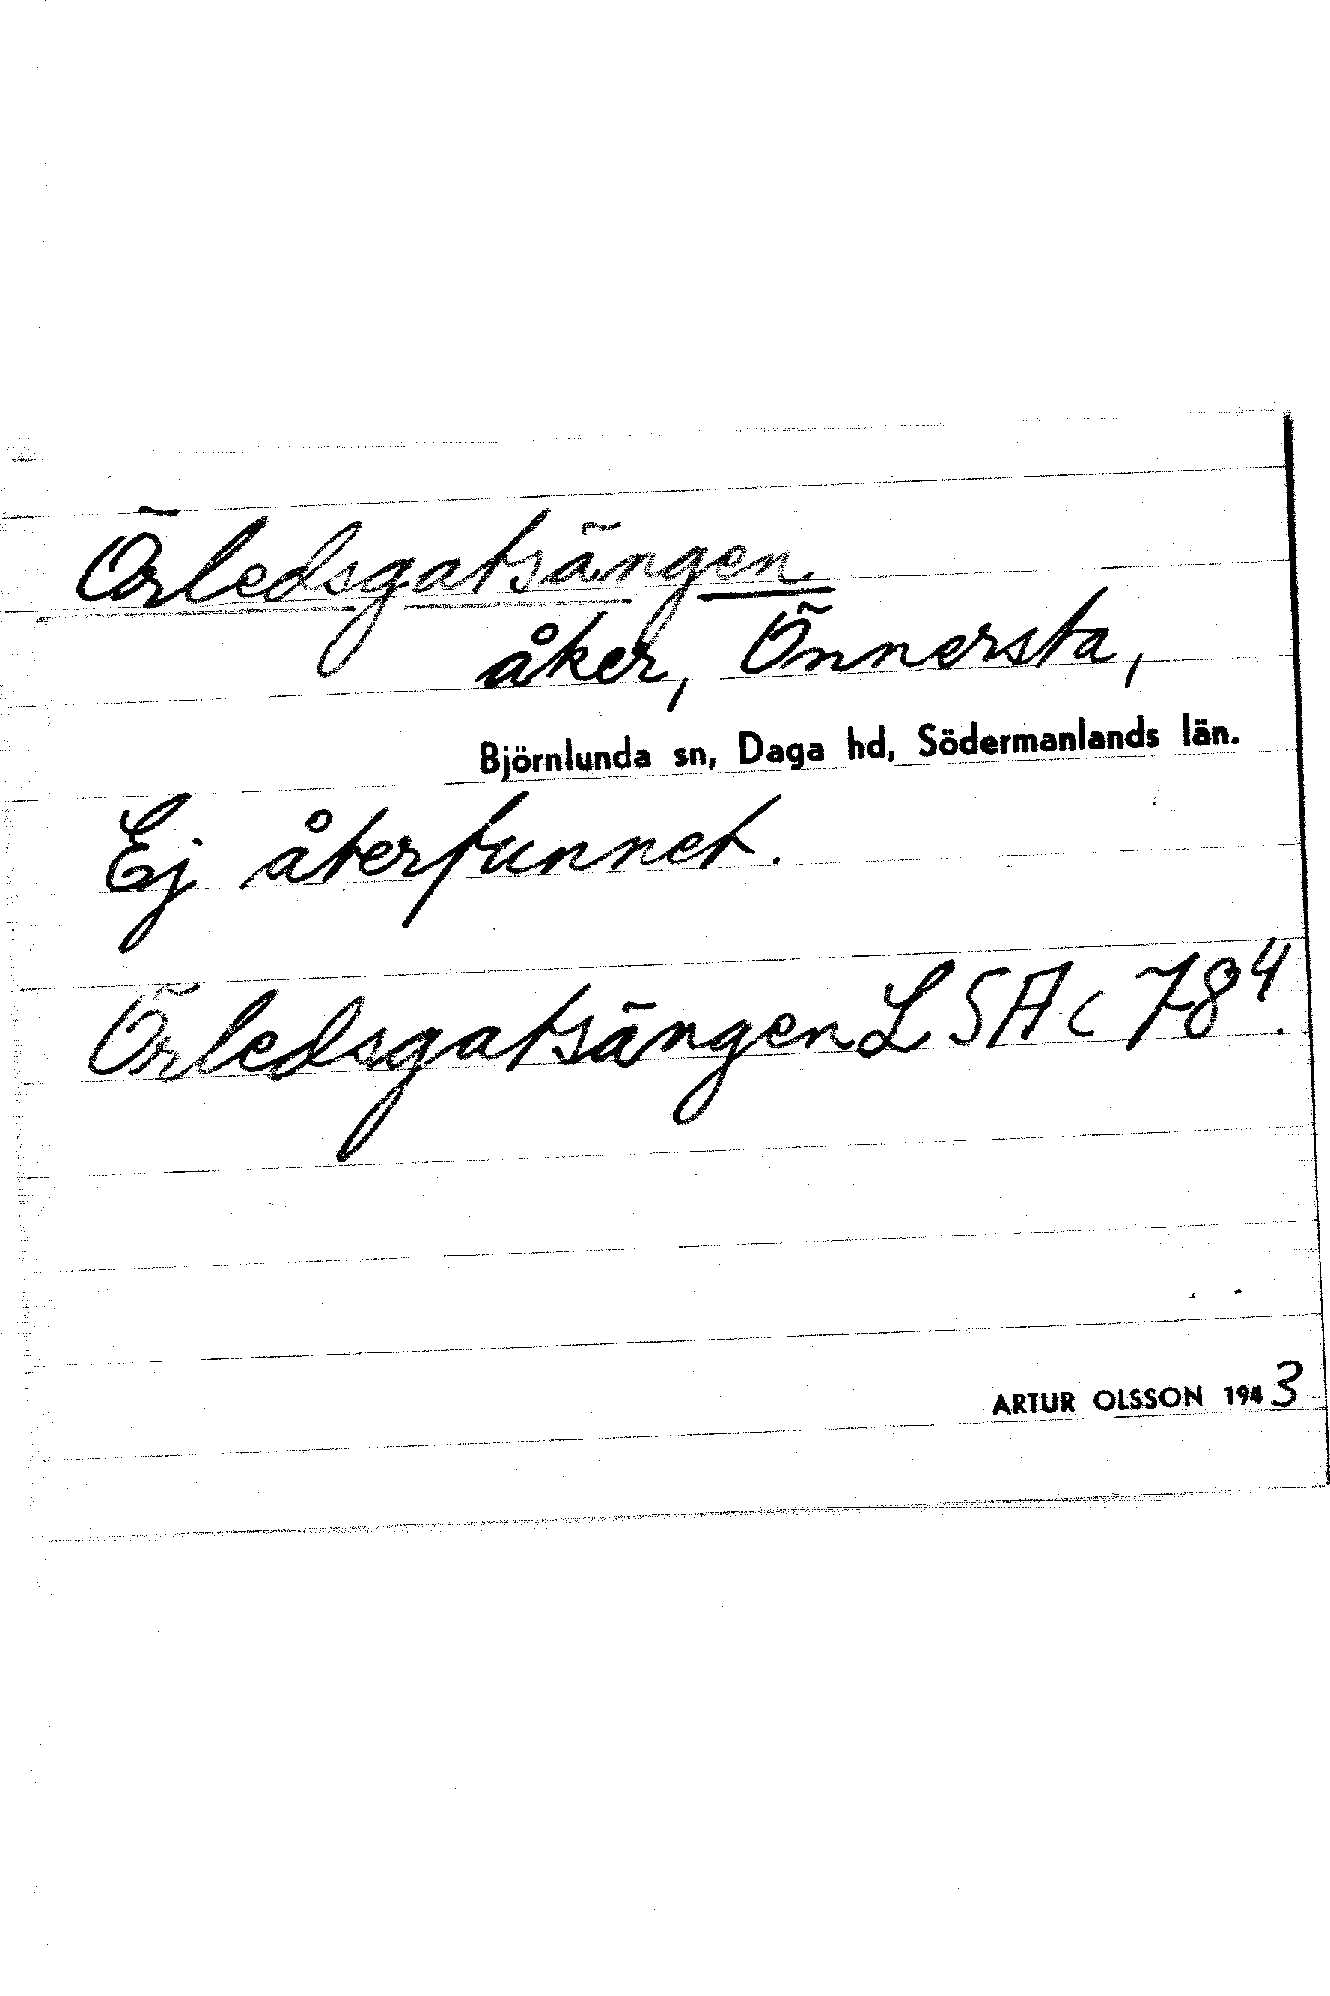 Örledsgatsängen.
åker, Önnersta,
Björnlunda sn, Daga hd, Södermanlands län.
Ej återfunnet.
Örledsgatsängen LSA c 78⁴.
ARTUR OLSSON 1943